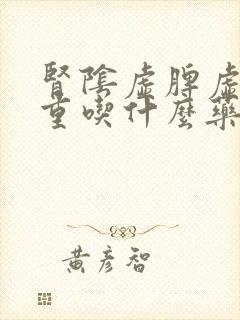 腎陰虛脾虛
重喫什麼藥
黃彥智